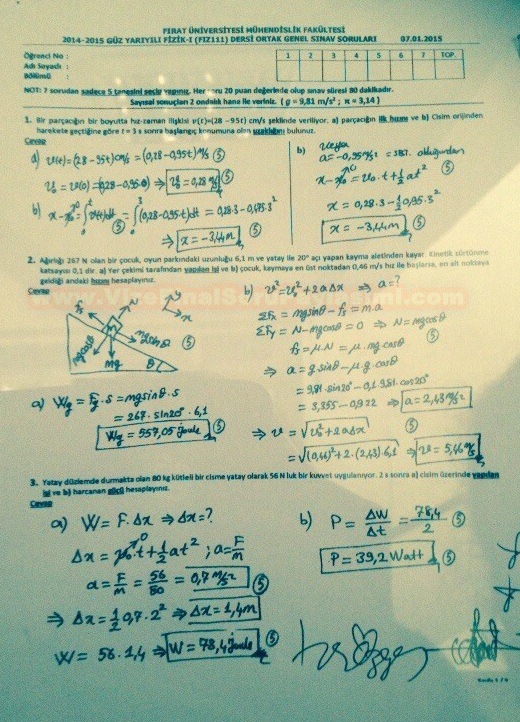 FIRAT ÜNİVERSİTESİ MÜHENDİSLİK FAKÜLTESİ
2014-2015 GÜZ YARIYILI FİZİK-I (FIZ111) DERSİ ORTAK GENEL SINAV SORULARI 07.01.2015
Öğrenci No :
Adı Soyadı :
Bölümü :
1 2 3 4 5 6 7 TOP.
NOT: 7 sorudan sadece 5 tanesini seçip yapınız. Her soru 20 puan değerinde olup sınav süresi 80 dakikadır.
Sayısal sonuçları 2 ondalık hane ile veriniz. ( g = 9,81 m/s² ; π = 3,14 )
1. Bir parçacığın bir boyutta hız-zaman ilişkisi v(t)=(28 – 95t) cm/s şeklinde veriliyor. a) parçacığın ilk hızını ve b) Cismin orijinden
harekete geçtiğine göre t = 3 s sonra başlangıç konumuna olan uzaklığını bulunuz.
Cevap
a) v(t)=(28-95t)cm/s =(0,28-0,95t)m/s (5)
v₀ = v(0)=(0,28-0,95·0) ⇒ v₀ = 0,28 m/s (5)
b) x-x₀=∫v(t)dt = ∫(0,28-0,95t)dt = 0,28·3-0,475·3²
(5)
⇒ x = -3,44m (5)
b) veya
a = -0,95 m/s² = sbt. olduğundan
x-x₀ = v₀·t+½at²
x = 0,28·3-½0,95·3²
x = -3,44m
2. Ağırlığı 267 N olan bir çocuk, oyun parkındaki uzunluğu 6,1 m ve yatay ile 20° açı yapan kayma aletinden kayar. Kinetik sürtünme
katsayısı 0,1 dir. a) Yer çekimi tarafından yapılan işi ve b) çocuk, kaymaya en üst noktadan 0,46 m/s hız ile başlarsa, en alt noktaya
geldiği andaki hızını hesaplayınız.
Cevap
www.VizeFinalSoruPaylasimi.com
fs N y x
mgsinθ (5)
mgcosθ
mg θ
a) Wg = Fg·s = mgsinθ·s
= 267·sin20°·6,1
Wg = 557,05 joule (5)
b) v²=v₀²+2aΔx ⇒ a=?
ΣFx = mgsinθ - fs = m.a
ΣFy = N-mgcosθ = 0 ⇒ N=mgcosθ
fs = μ.N = μ.mg.cosθ (5)
⇒ a = g.sinθ-μ.g.cosθ
= 9,81·sin20°-0,1·9,81·cos20°
= 3,355-0,922 ⇒ a = 2,43 m/s²
⇒ v = √v₀²+2aΔx (5)
= √(0,46)²+2·(2,43)·6,1 ⇒ v = 5,46 m/s
3. Yatay düzlemde durmakta olan 80 kg kütleli bir cisme yatay olarak 56 N luk bir kuvvet uygulanıyor. 2 s sonra a) cisim üzerinde yapılan
işi ve b) harcanan gücü hesaplayınız.
Cevap
a) W = F.Δx ⇒ Δx=?
Δx = v₀.t+½at² ; a=F/m
a = F/m = 56/80 = 0,7 m/s² (5)
⇒ Δx = ½ 0,7·2² ⇒ Δx = 1,4m
W = 56·1,4 ⇒ W = 78,4 joule (5)
b) P = ΔW/Δt = 78,4/2 (5)
P = 39,2 Watt (5)